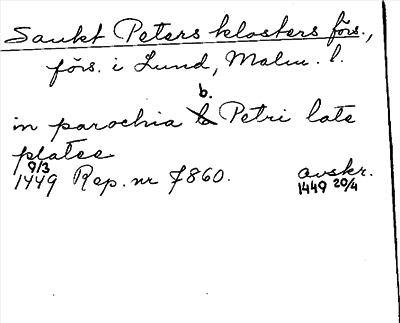 Sankt Peters klosters förs.,
förs. i Lund, Malm. l.
b.
in parochia Petri late
platee
9/3
1449 Rep. nr 7860. avskr.
1449 20/4